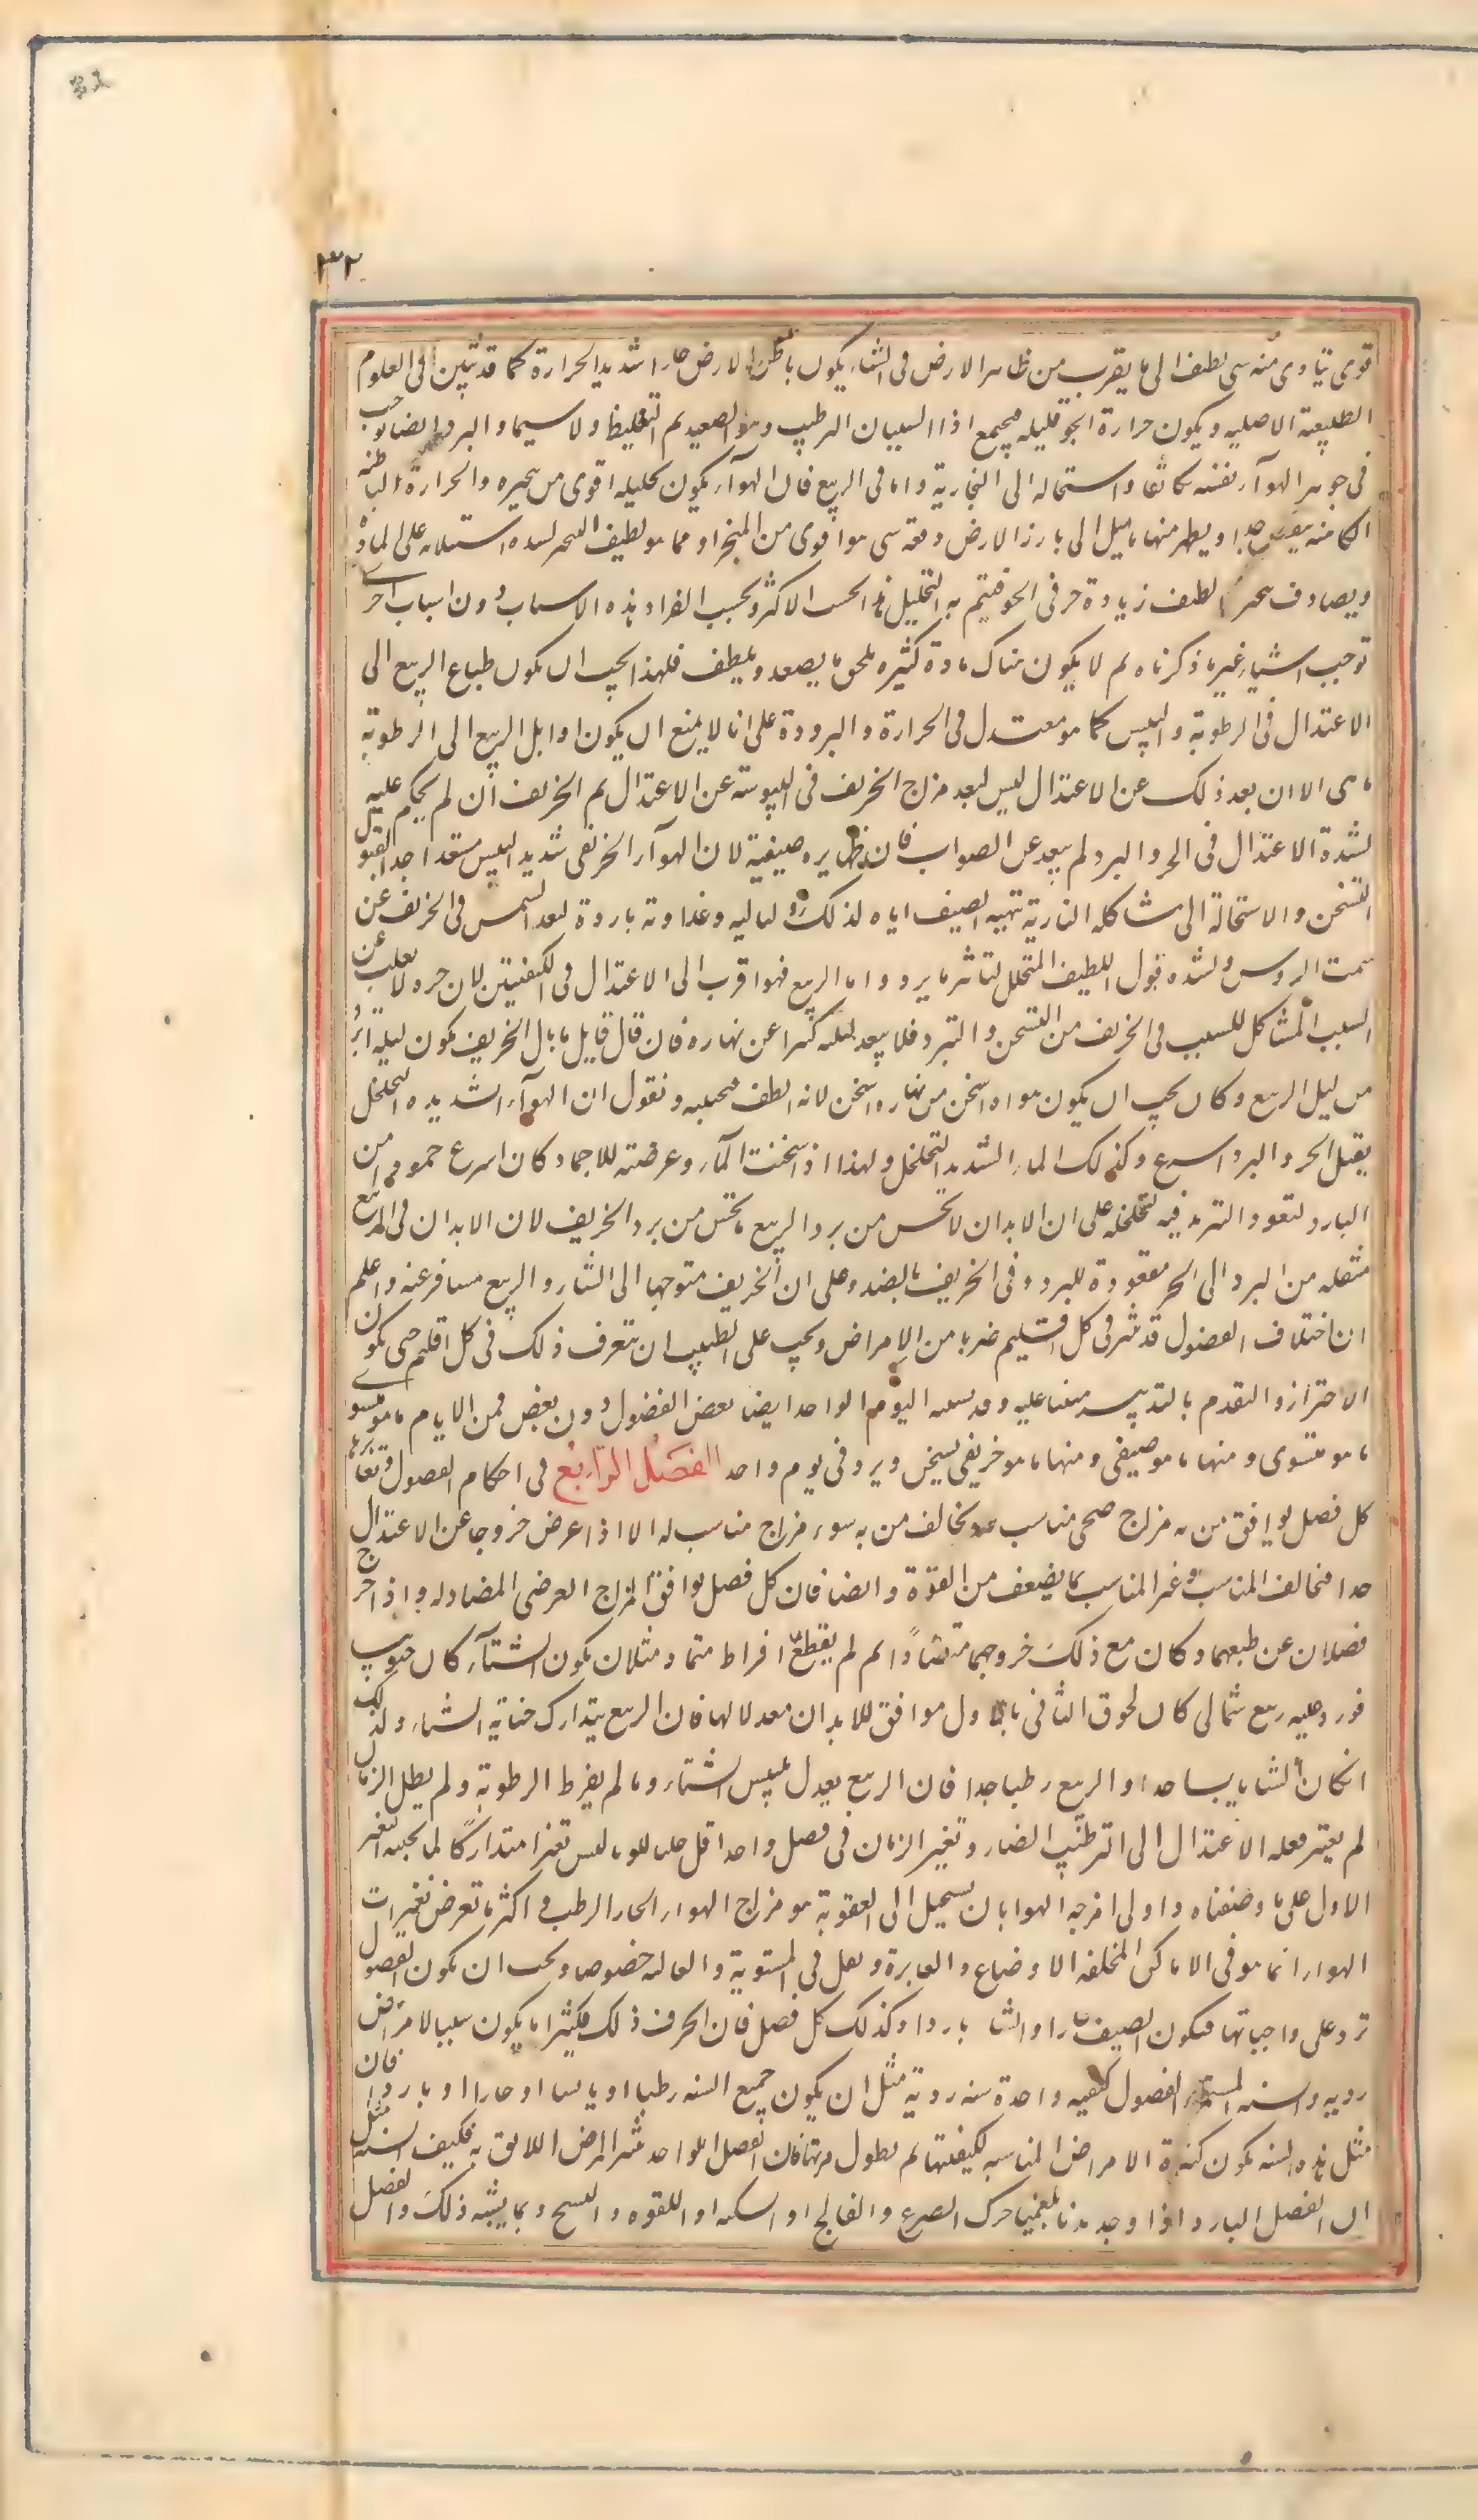 ٣٢
قوى يتاوى منه شى لطيف الى ما يقرب من ظاهر الارض فى الشتاء يكون باطن الارض حارا شديد الحرارة كما قد تبين فى العلوم
الطبيعية الاصليه ويكون حرارة الجو قليله فيجتمع اذا السببان الترطيب وهو التصعيد ثم التغليظ ولا سيما والبرد ايضا يوجب
فى جوهر الهوآء نفسه تكاثفا واستحاله الى البخارية واما فى الربيع فان الهوآء يكون تحليله اقوى من تبخيره والحرارة الباطنه
الكامنه ينقص جدا ويظهر منها ما يميل الى بارز الارض دفعه شى هو اقوى من المبخر او مما هو لطيف التبخير لشده استيلائه على المادة
ويصادف تبخيره اللطيف زيادة حر فى الجو فيتم به التحليل هذا بحسب الاكثر وبحسب انفراد هذه الاسباب دون اسباب اخرى
توجب اشياء غير ما ذكرناه ثم لا يكون هناك مادة كثيره تلحق ما يصعد ويلطف فلهذا يجب ان يكون طباع الربيع الى
الاعتدال فى الرطوبة واليبس كما هو معتدل فى الحرارة والبرودة على انا لا نمنع ان يكون اوايل الربيع الى الرطوبة
ما هى الا ان بعد ذلك عن الاعتدال ليس كبعد مزاج الخريف فى اليبوسة عن الاعتدال ثم الخريف ان لم يحكم عليه
بشدة الاعتدال فى الحر والبرد لم يبعد عن الصواب فان ظهايره صيفية لان الهوآء الخريفى شديد اليبس مستعد جدا لقبول
التسخن والاستحالة الى مشاكله النارية بتهيئة الصيف اياه لذلك ولياليه وغداوته باردة لبعد الشمس فى الخريف عن
سمت الروس ولشده قبول اللطيف المتخلل لتاثير ما يبرد واما الربيع فهو اقرب الى الاعتدال فى الكيفيتين لان جوه لا يقبل عن
السبب المشاكل للسبب فى الخريف من التسخن والتبرد فلا يبعد ليله كثيرا عن نهاره فان قال قايل ما بال الخريف يكون ليله ابرد
من ليل الربيع وكان يجب ان يكون هواه اسخن من نهاره اسخن لانه الطف فنجيبه ونقول ان الهوآء الشديد التخلخل
يقبل الحر والبرد اسرع وكذلك الماء الشديد التخلخل ولهذا اذا سخنت المآء وعرضته للاجماد كان اسرع جمودا من
البارد لنفوذ التبريد فيه لتخلخله على ان الابدان لا تحس من برد الربيع ما تحس من برد الخريف لان الابدان فى الربيع
منتقله من البرد الى الحر متعودة للبرد وفى الخريف بالضد وعلى ان الخريف متوجها الى الشتاء والربيع مسافر عنه واعلم
ان اختلاف الفصول قد يثير فى كل اقليم ضربا من الامراض ويجب على الطبيب ان يتعرف ذلك فى كل اقليم حتى يكون
الاحتراز والتقدم بالتدبير مبنيا عليه وقد يشبه اليوم الواحد ايضا بعض الفصول دون بعض فمن الايام ما هو شتوى
ما هو شتوى ومنها ما هو صيفى ومنها ما هو خريفى يسخن ويبرد فى يوم واحد الفصل الرابع فى احكام الفصول وتغايرها
كل فصل يوافق من به مزاج صحى مناسب له ويخالف من به سوء مزاج مناسب له الا اذا عرض خروجا عن الاعتدال
جدا فيخالف المناسب وغير المناسب بما يضعف من القوة وايضا فان كل فصل يوافق المزاج العرضى المضاد له واذا خرج
فصلان عن طبعهما وكان مع ذلك خروجهما متضادا ثم لم يقع افراط متماد مثل ان يكون الشتآء كان جنوبيا
فورد عليه ربيع شمالى كان لحوق الثانى بالاول موافق للابدان معدلا لها فان الربيع يتدارك جناية الشتاء وكذلك
ان كان الشتا يابسا جدا والربيع رطبا جدا فان الربيع يعدل يبس الشتاء وما لم يفرط الرطوبة ولم يطل الزمان
لم يتغير فعله الاعتدال الى الترطيب الضار وتغير الزمان فى فصل واحد اقل جلبا للوباء ليس تغيرا متداركًا لما يجنيه التغير
الاول على ما وصفناه واولى امزجه الهوا بان يستحيل الى العفونة هو مزاج الهواء الحار الرطب و اكثر ما تعرض تغيرات
الهواء انما هو فى الاماكن المختلفه الاوضاع والغايرة ويقل فى المستوية والعاليه خصوصا ويجب ان يكون الفصول
ترد على واجباتها فيكون الصيف حارا والشتا باردا وكذلك كل فصل فان انخرف ذلك فكثيرا ما يكون سببا لامراض
رديه والسنه المستمرة الفصول على كيفيه واحدة سنه ردية مثل ان يكون جميع السنه رطبا او يابسا او حارا او باردا فان
مثل هذه السنه يكون كثيرة الامراض المناسبه لكيفيتها ثم يطول مدتها فان الفصل الواحد يثير المرض اللايق به فكيف السنه مثل
ان الفصل البارد اذا وجد بدنا بلغميا حرك الصرع والفالج او السكته او اللقوه والتشنج وبما يشبه ذلك والفصل